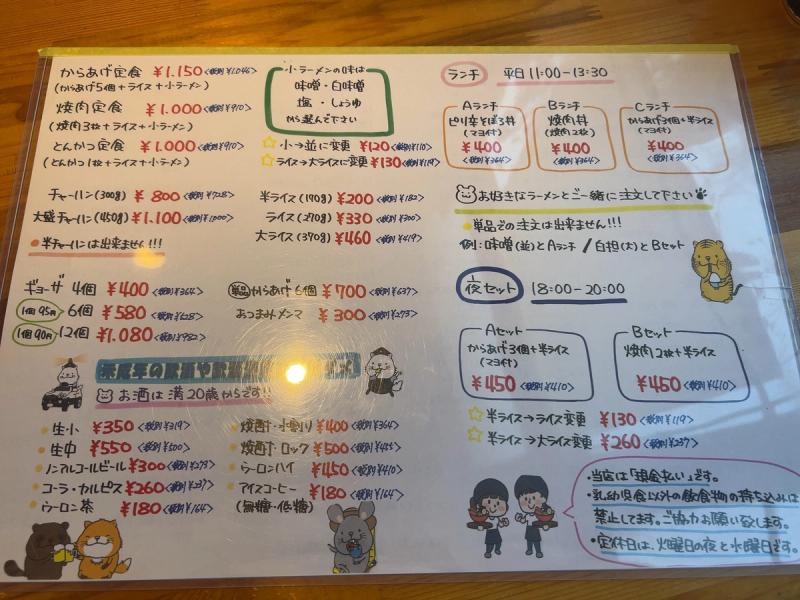 からあげ定食 ¥1.150 <税別¥1.046>
(からあげ5個+ライス+小ラーメン)
焼肉定食 ¥1.000 <税別¥910>
(焼肉3枚+ライス+小ラーメン)
とんかつ定食 ¥1.000 <税別¥910>
(とんかつ1枚+ライス+小ラーメン)
小ラーメンの味は
味噌・白味噌
塩・しょうゆ
から選んで下さい
小→並に変更 ¥120 <税別¥110>
ライス→大ライスに変更 ¥130 <税別¥119>
チャーハン(300g) ¥800 <税別¥728>
大盛チャーハン(450g) ¥1.100 <税別¥1.000>
・半チャーハンは出来ません!!!
半ライス(170g) ¥200 <税別¥182>
ライス(270g) ¥330 <税別¥300>
大ライス(370g) ¥460 <税別¥419>
ギョーザ 4個 ¥400 <税別¥364>
1個95円 6個 ¥580 <税別¥528>
1個90円 12個 ¥1.080 <税別¥982>
単品からあげ6個 ¥700 <税別¥637>
おつまみメンマ ¥300 <税別¥273>
お酒は満20歳からです!!
・生小 ¥350 <税別¥319>
・生中 ¥550 <税別¥500>
・ノンアルコールビール ¥300 <税別¥273>
・コーラ・カルピス ¥260 <税別¥237>
・ウーロン茶 ¥180 <税別¥164>
・焼酎・水割り ¥400 <税別¥364>
・焼酎・ロック ¥500 <税別¥455>
・ウーロンハイ ¥450 <税別¥410>
・アイスコーヒー ¥180 <税別¥164>
(無糖・低糖)
ランチ 平日 11:00-13:30
Aランチ
ピリ辛そぼろ丼
(マヨ付)
¥400
<税別¥364>
Bランチ
焼肉丼
(焼肉2枚)
¥400
<税別¥364>
Cランチ
からあげ3個+半ライス
(マヨ付)
¥400
<税別¥364>
お好きなラーメンとご一緒に注文して下さい
・単品での注文は出来ません!!!
例:味噌(並)とAランチ / 白担(大)とBセット
夜セット 18:00-20:00
Aセット
からあげ3個+半ライス
(マヨ付)
¥450 <税別¥410>
Bセット
焼肉2枚+半ライス
¥450 <税別¥410>
半ライス→ライス変更 ¥130 <税別¥119>
半ライス→大ライス変更 ¥260 <税別¥237>
・当店は「現金払い」です。
・乳幼児食以外の飲食物の持ち込みは
禁止してます。ご協力お願い致します。
・定休日は、火曜日の夜と水曜日です。